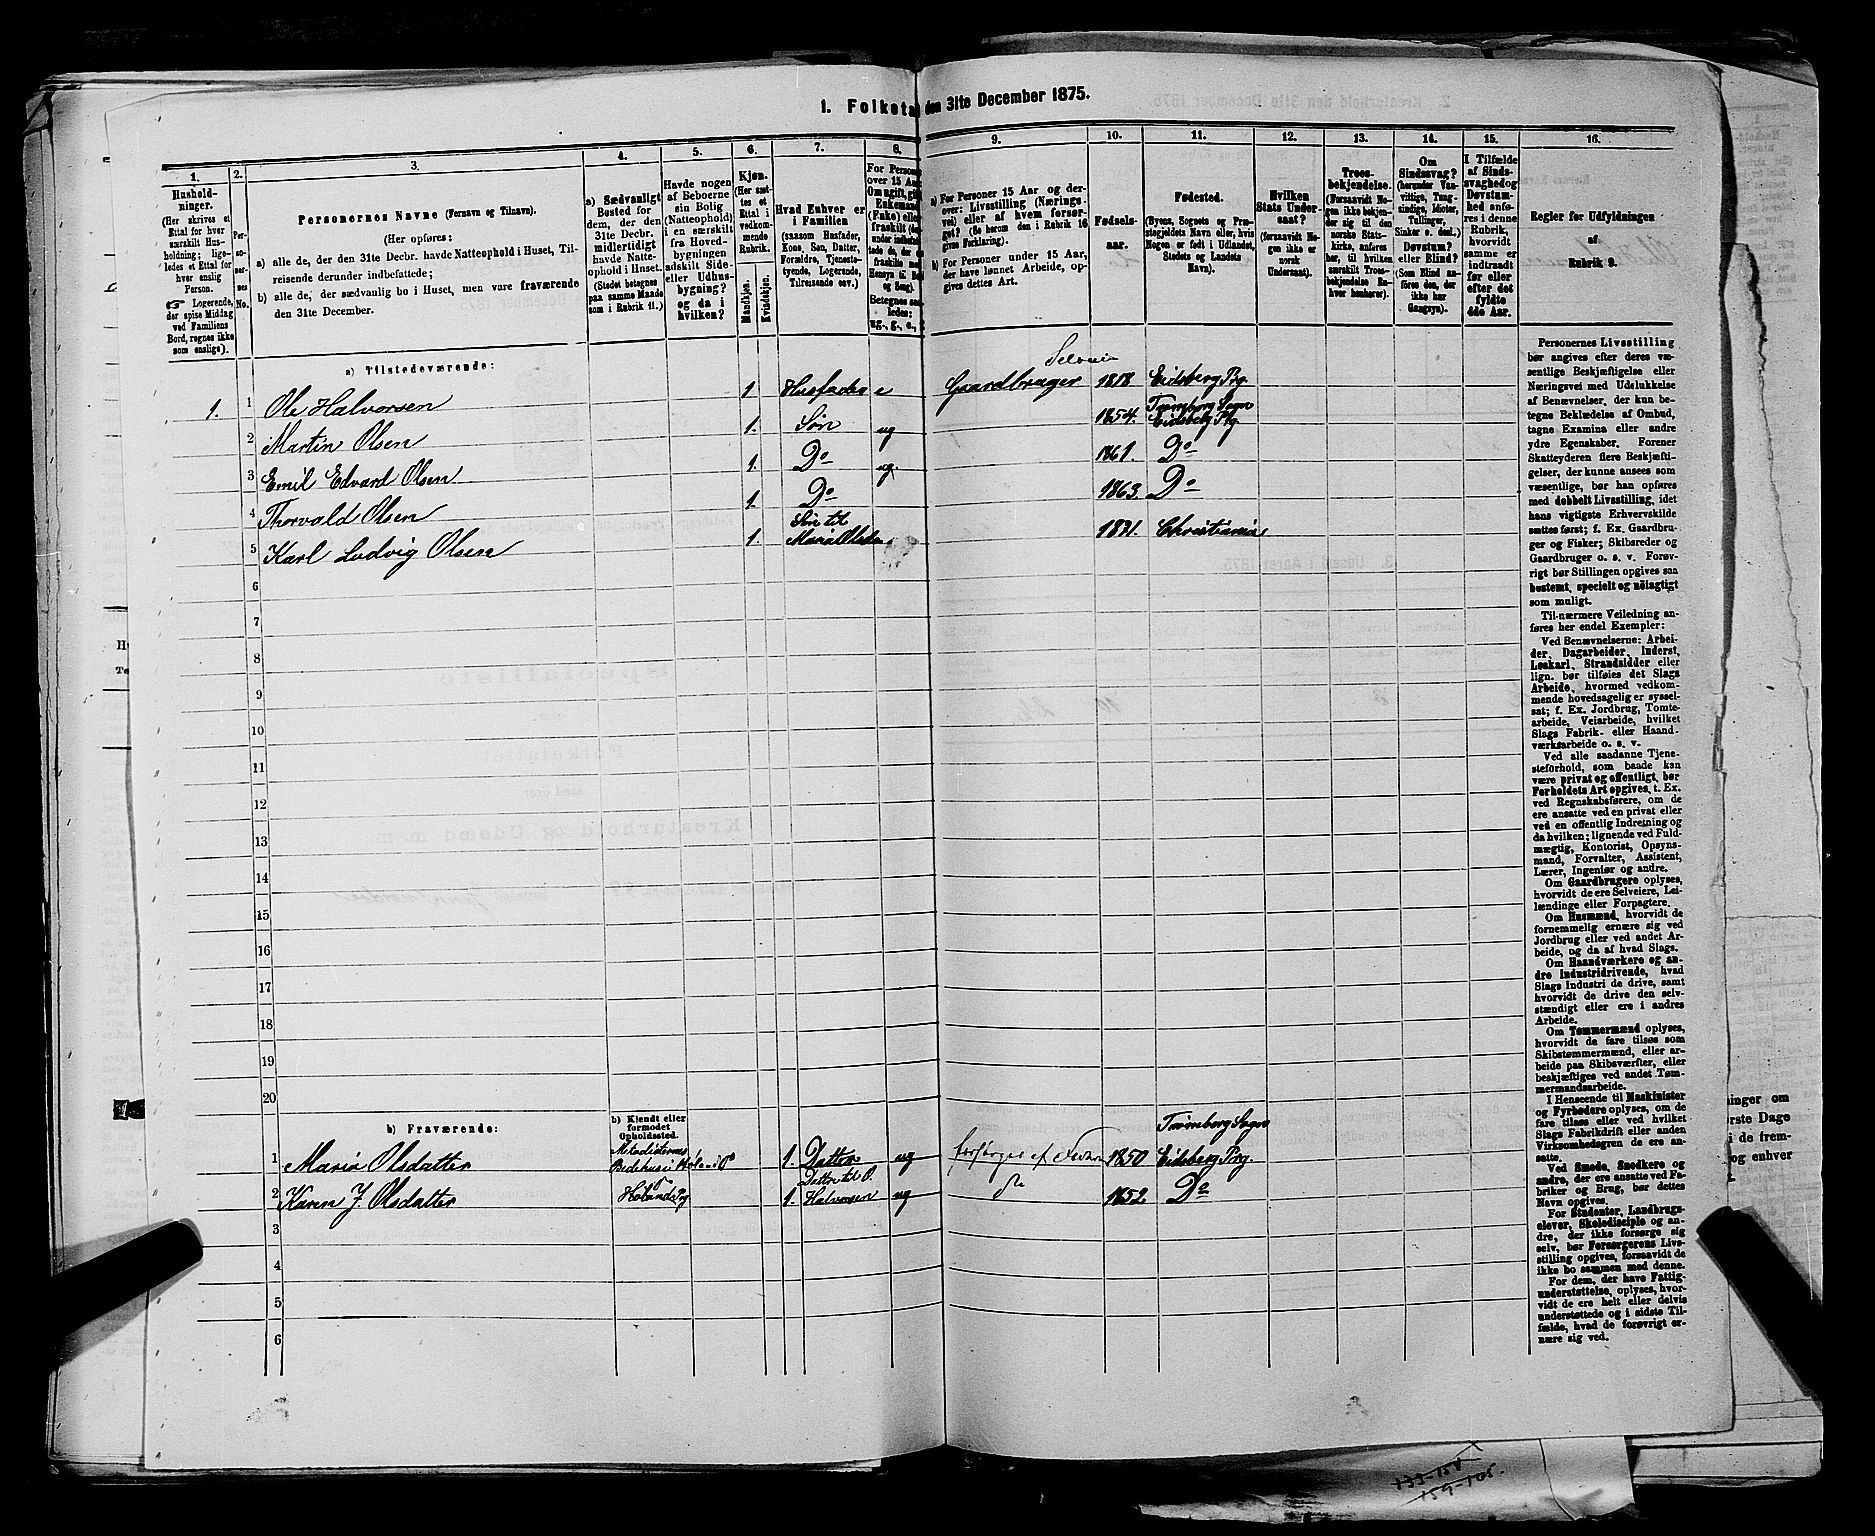 1. Folketæ den 31te December 1875.
1. 2. 3. 4. 5. 6. 7. 8. 9. 10. 11. 12. 13. 14. 15. 16.
Hushold-
ninger.
(Her skrives et
Ettal for hver
særskilt Hus-
holdning; lige-
ledes et Ettal for
hver enslig
Person.
☞ Logerende,
der spise Middag
ved Familiens
Bord, regnes ikke
som enslige).
Per-
so-
ner-
nes
No.
Personernes Navne (Fornavn og Tilnavn).
(Her opføres:
a) alle de, der den 31te Decbr. havde Natteophold i Huset, Til-
reisende derunder indbefattede;
b) alle de, der sædvanlig bo i Huset, men vare fraværende
den 31te December.
a) Sædvanligt
Bosted for
dem, der den
31te Decbr.
midlertidigt
havde Natte-
ophold i Huset.
(Stedet betegnes
paa samme Maade
som i Rubrik 11.)
Havde nogen
af Beboerne
sin Bolig
(Natteophold)
i en særskilt
fra Hoved-
bygningen
adskilt Side-
eller Udhus-
bygning?
og da i
hvilken?
Kjøn.
(Her sæt-
tes et
Ettal i
vedkom-
mende
Rubrik.
Mandkjøn.
Kvindekjøn.
Hvad Enhver er
i Familien
(saasom Husfader,
Kone, Søn, Datter,
Forældre, Tjeneste-
tyende, Logerende,
Tilreisende osv.)
For Persone
over 15 Aar
Om ugift, gift
Enkemand
(Enke) eller
fraskilt
Betegnes saa-
ledes:
ug., g., e.,
a) For Personer 15 Aar og der-
over: Livsstilling (Nærings-
vei) eller af hvem forsør-
get? (Se herom den i Rubrik 16
givne Forklaring).
b) For Personer under 15 Aar,
der have lønnet Arbeide, op-
gives dettes Art.
Fødsels-
aar.
Fødested.
(Byens, Sognets og Præ-
stegjeldets Navn eller, hvis
Nogen er født i Udlandet,
Stedets og Landets
Navn).
Hvilken
Stats Under-
saat?
(forsaavidt No-
gen ikke er
norsk
Undersaat).
Troes-
bekjendelse.
(Forsaavidt No-
gen ikke bekjen-
der sig til den
norske Stats-
kirke, anføres
her, til hvilken
særskilt Troes-
bekjendelse En-
hver henhører).
Om
Sindssvag?
(herunder Van-
vittige, Tung-
sindige, Idioter,
Tullinger,
Sinker o. desl.)
Døvstum?
eller Blind?
(Som Blind an-
føres den, der
ikke har
Gangsyn).
I Tilfælde
af Sinds-
svaghed og
Døvstum-
hed anfø-
res i denne
Rubrik,
hvorvidt
samme er
indtraadt
før eller
efter det
fyldte
4de Aar.
Regler for Udfyldningen
af
Rubrik 9.
a) Tilstedeværende:
1. 1 Ole Halvorsen 1 Husfader e Gaardbruger Selveier 1818 Eidsberg Prg.
2 Martin Olsen 1. Søn ug 1854. Trømborg Sogn Eidsberg Prg.
3 Emil Edvard Olsen 1. Do ug. 1861. Do
4 Thorvald Olsen 1. Do 1863. Do
5 Karl Ludvig Olsen 1. Søn til Maria Olsdatter 1871. Christiania
6
7
8
9
10
11
12
13
14
15
16
17
18
19
20
b) Fraværende:
b) Kjendt eller
formodet
Opholdssted.
1 Maria Olsdatter Metodisternes Bedehus i Høland P 1. Datter ug forsørges af Faderen 1850 Trømborg Sogn Eidsberg Prg.
2 Karen J. Olsdatter Hølands Pg 1. Datter til O. Halvorsen ug do 1852. Do
3
4
5
6
Personernes Livsstilling
bør angives efter deres væ-
sentlige Beskjæftigelse eller
Næringsvei med Udelukkelse
af Benævnelser, der kun be-
tegne Beklædelse af Ombud,
tagne Examina eller andre
ydre Egenskaber. Forener
Skatteyderen flere Beskjæfti-
gelser, der kunne ansees som
væsentlige, bør han opføres
med dobbelt Livsstilling, idet
hans vigtigste Erhvervskilde
sættes først; f. Ex. Gaardbru-
ger og Fisker; Skibsreder og
Gaardbruger o. s. v. Forøv-
rigt bør Stillingen opgives saa
bestemt, specielt og nøiagtigt
som muligt.
Til nærmere Veiledning an-
føres her endel Exempler:
Ved Benævnelserne: Arbei-
der, Dagarbeider, Inderst,
Løskarl, Strandsidder eller
lign. bør tilføies det Slags
Arbeide, hvormed vedkom-
mende hovedsagelig er syssel-
sat; f. Ex. Jordbrug, Tomte-
arbeide, Veiarbeide, hvilket
Slags Fabrik- eller Haand-
værksarbeide o. s. v.
Ved alle saadanne Tjene-
steforhold, som baade kan
være privat og offentligt, bør
Forholdets Art opgives, t. Ex.
ved Regnskabsførere, om de
ere ansatte ved en privat eller
ved en offentlig Indretning og
da hvilken; lignende ved Fuld-
mægtig, Kontorist, Opsyns-
mand, Forvalter, Assistent,
Lærer, Ingeniør og andre.
Om Gaardbrugere oplyses,
hvorvidt de ere Selveiere, Lei-
lændinge eller Forpagtere.
Om Husmænd, hvorvidt de
fornemmelig ernære sig ved
Jordbrug eller ved andet Ar-
beide, og da af hvad Slags.
Om Haandværkere og an-
dre Industridrivende, hvad
Slags Industri de drive, samt
hvorvidt de drive den selv-
stændigt eller ere i andres
Arbeide.
Om Tømmermænd oplyses,
hvorvidt de fare tilsøs som
Skibstømmermænd, eller ar-
beide paa Skibsværfter, eller
beskjæftiges ved andet Tøm-
mermandsarbeide.
I Henseende til Maskinister
og Fyrbødere oplyses, om de
fare tilsøs eller ved hvilket
Slags Fabrikdrift eller anden
Virksomhedsgren de ere an-
satte.
Ved Smede, Snedkere og
andre, der ere ansatte ved Fa-
briker og Brug, bør dettes
Navn opgives.
For Studenter, Landbrugs-
elever, Skoledisciple og an-
dre, der ikke forsørge sig
selv, bør Forsørgerens Livs-
stilling opgives, forsaavidt de
ikke bo sammen med denne.
For dem, der have Fattig-
understøttelse, oplyses, hvor-
vidt de ere helt eller delvis
understøttede og i sidste Til-
fælde, hvad de forøvrigt er-
nære sig ved.
ninger om
rste Dage
i de frem-
og enhver